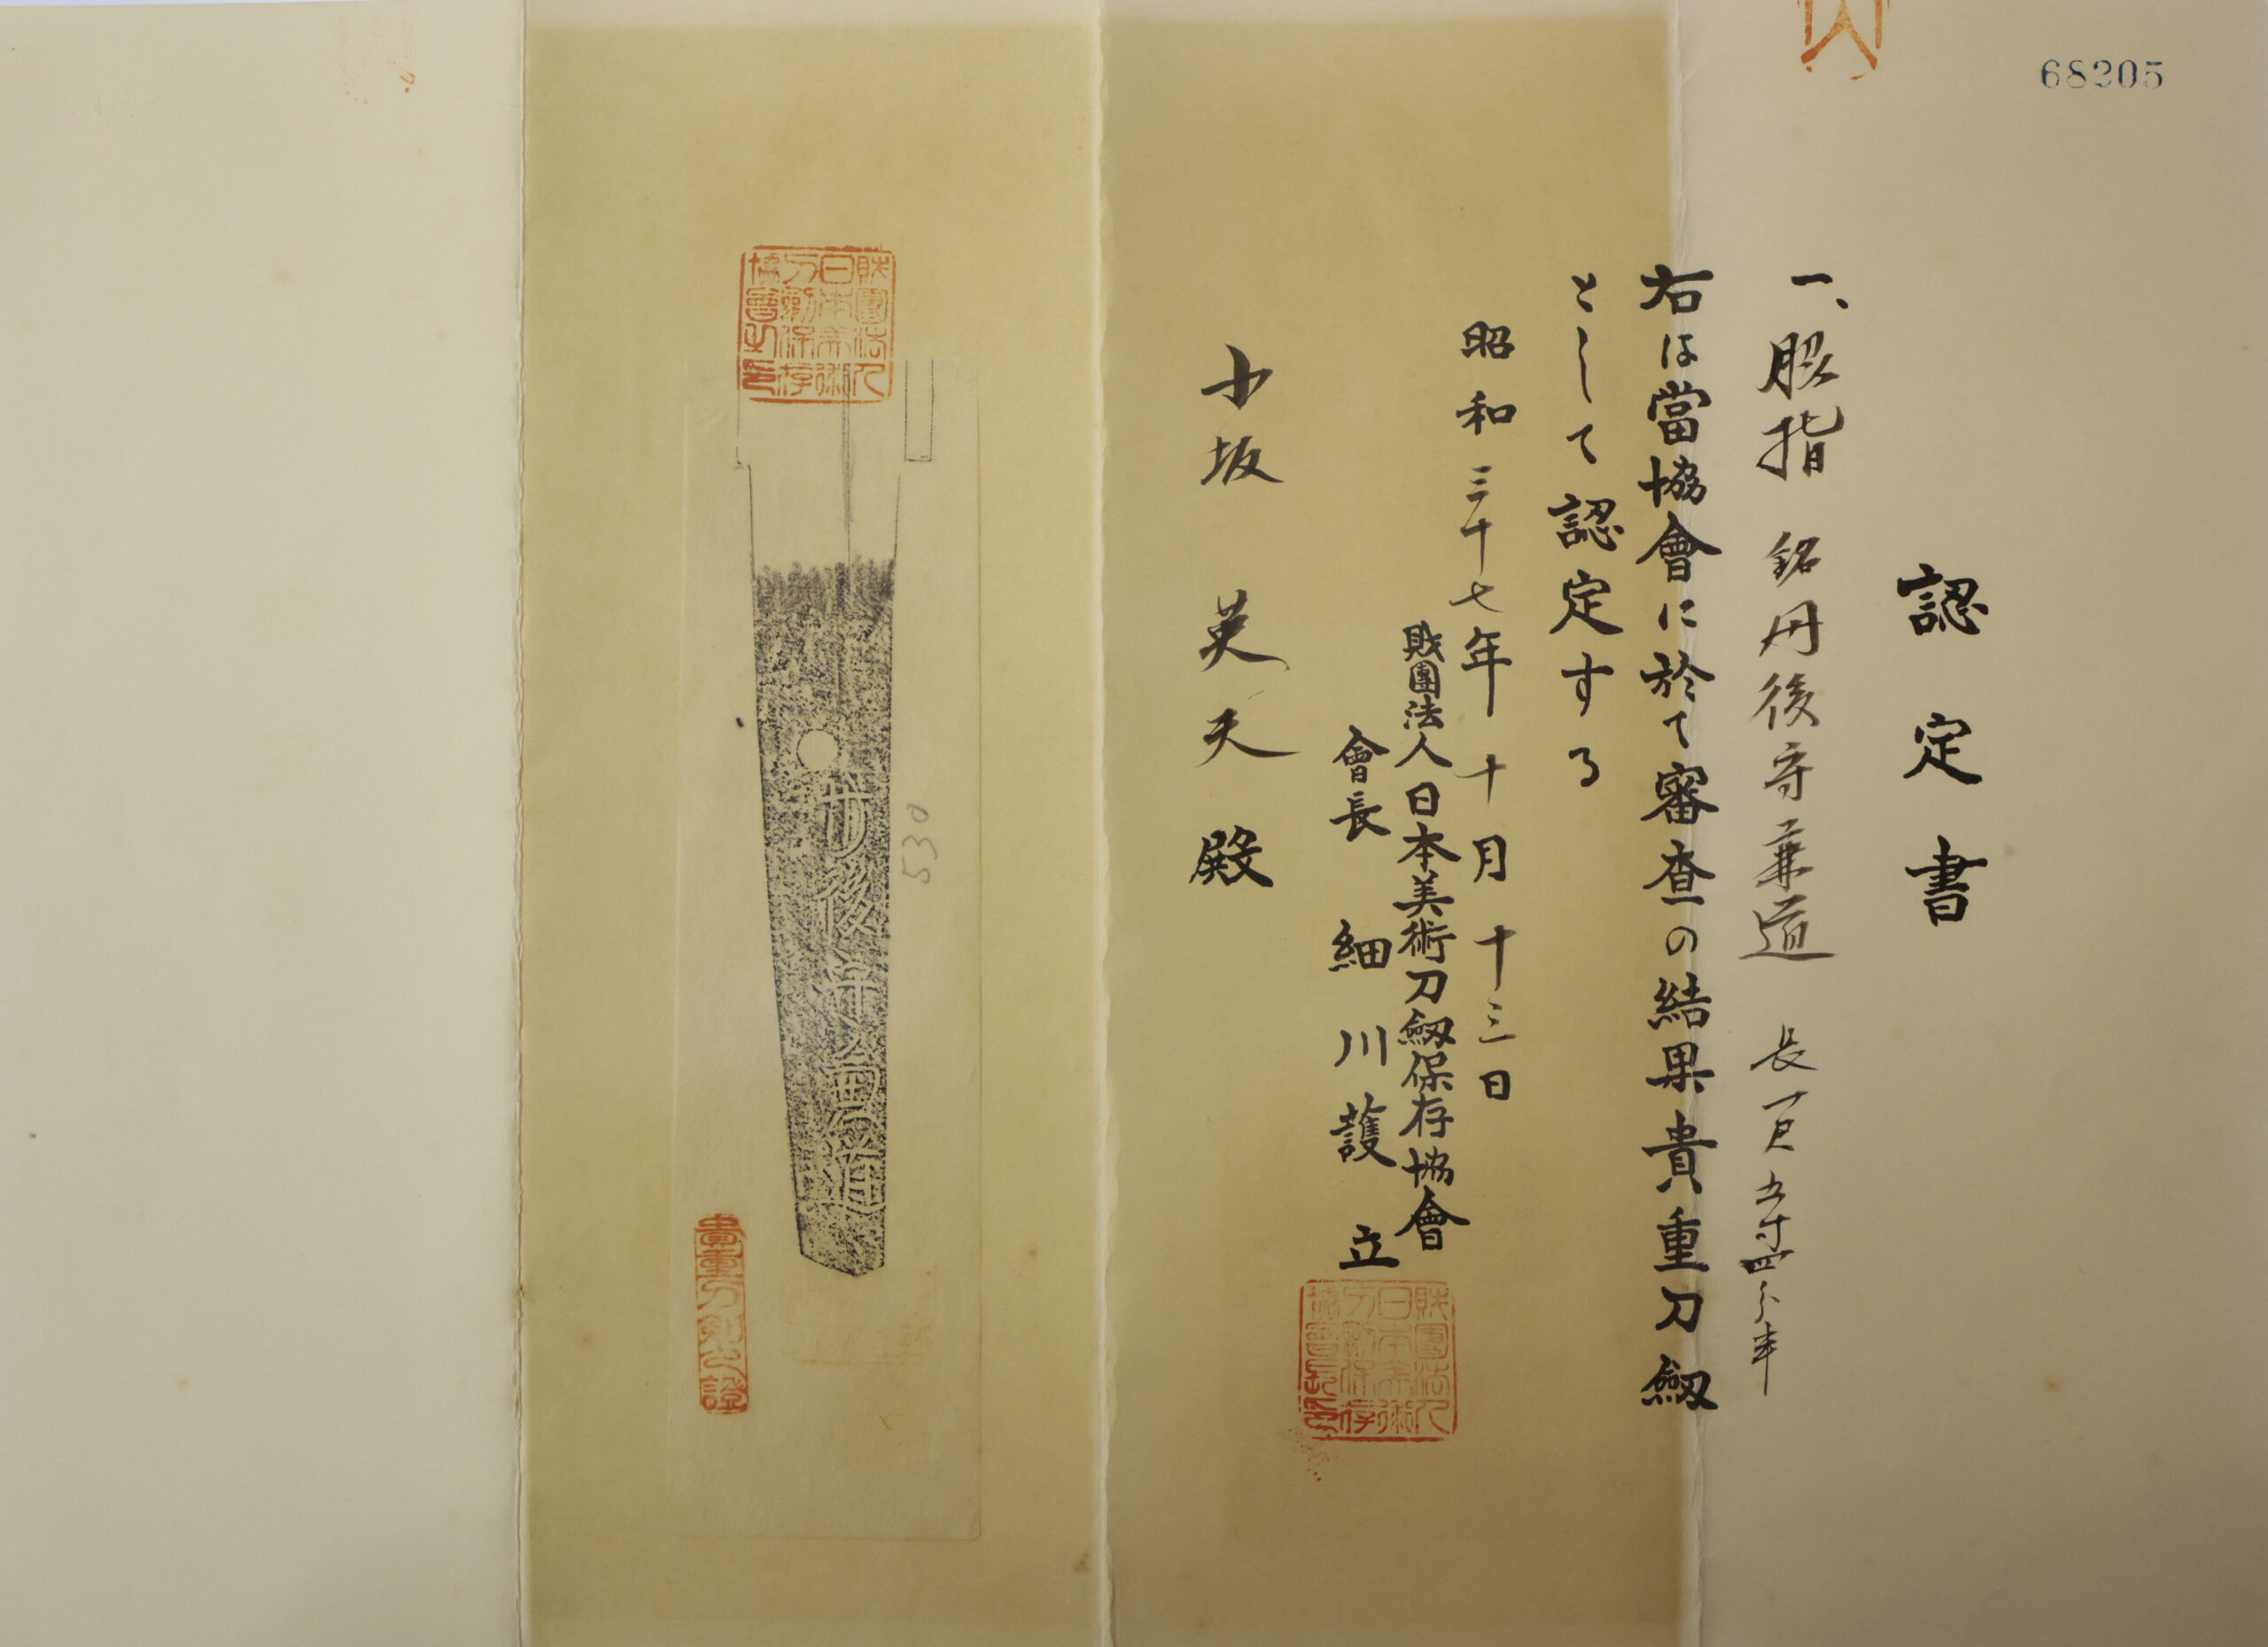 68205
認定書
一、脇指 銘丹後守兼道 長一尺五寸四分半
右は當協會に於て審査の結果貴重刀劔
として認定する
昭和三十七年十月十三日
財團法人日本美術刀劔保存協會
會長 細川護立
財團法人日本美術刀劔保存協會長印
小坂英夫殿
財團法人日本美術刀劔保存協會之印
丹後守兼道
530
貴重刀劔之證